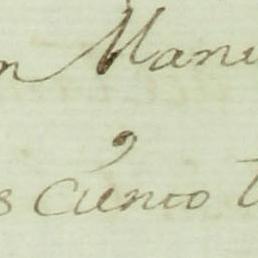 n Mani
s Ciento t